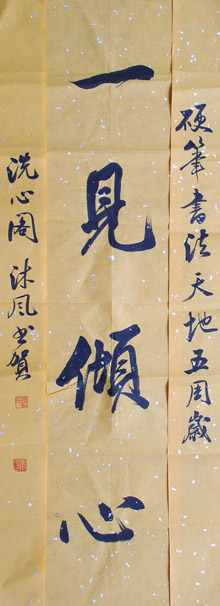 硬筆書法天地五周歲
一見傾心
洗心閣 沐风书賀